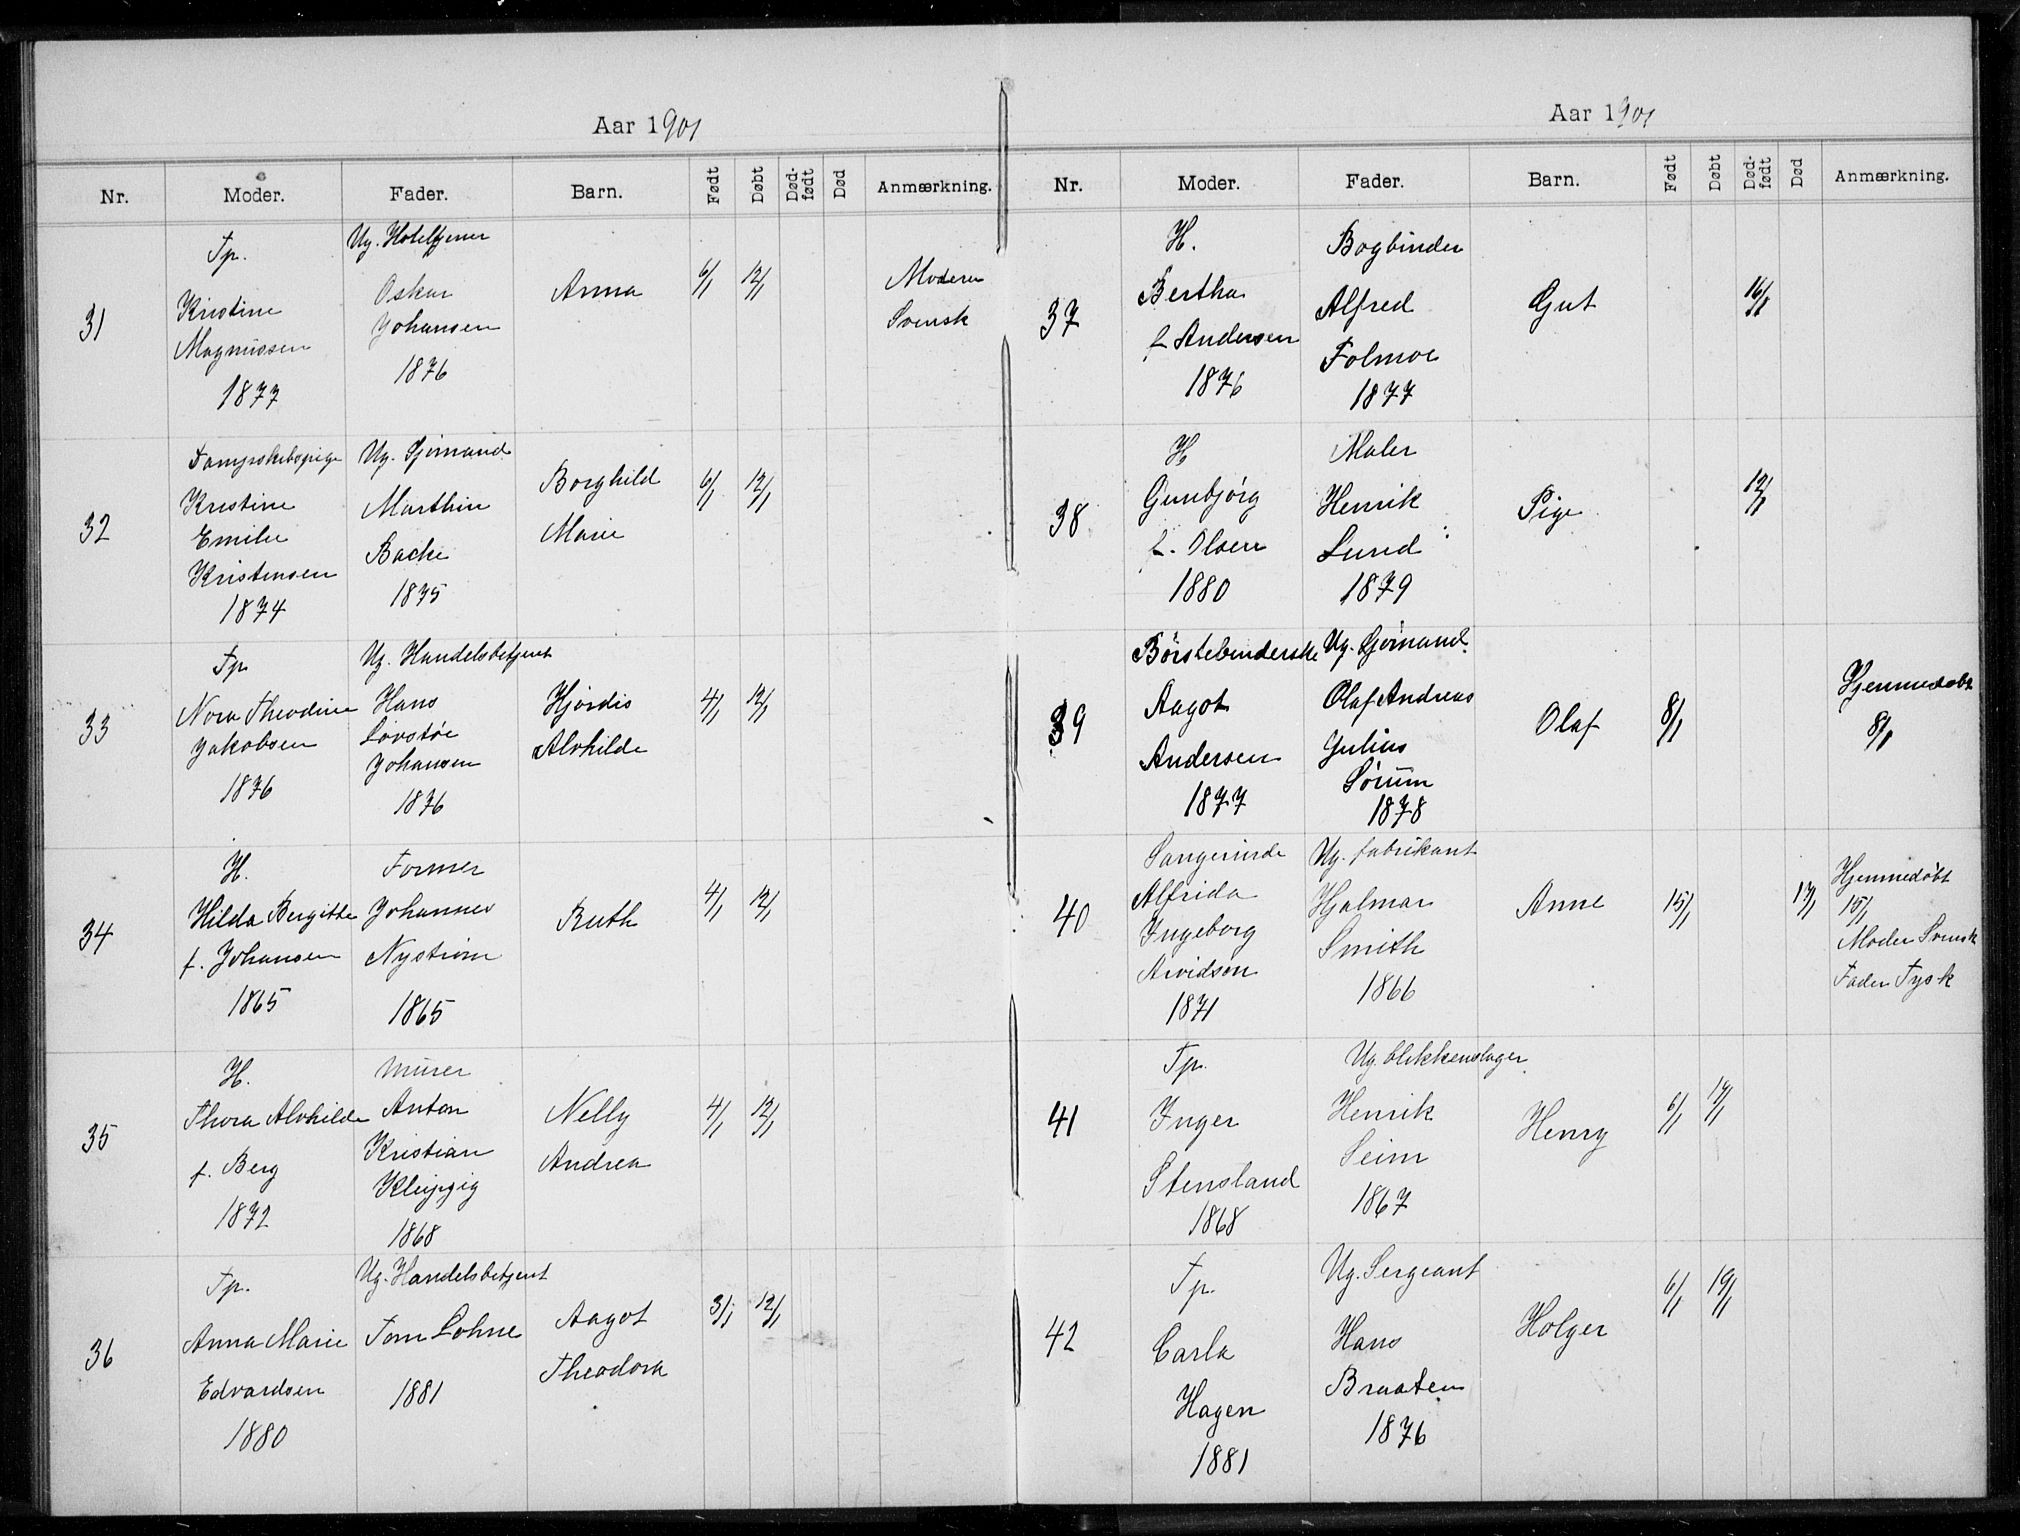 Aar 1901
Nr. Moder. Fader. Barn. Født Døbt Død-født Død Anmærkning.
31
Tp.
Kristine
Magnussen
1877
Ug. Hoteltjener
Oskar
Johansen
1876
Anna
6/1 12/1
Moderen
Svensk
32
Kristine
Emilie
Kristensen
1874
Ug. Sjømand
Marthin
Backe
1875
Borghild
Marie
6/1 12/1
33
Tp
Nora Theodine
Jakobsen
1876
Ug. Handelsbetjent
Hans
Lovstøe
Johansen
1876
Hjørdis
Alvhilde
4/1 12/1
34
H.
Hilda Bergitte
f. Johansen
1865
Former
Johannes
Nystrøm
1865
Ruth
4/1 12/1
35
H.
Thora Alvhilde
f. Berg
1872
Murer
Anton
Kristian
1868
Nelly
Andrea
4/1 12/1
36
Tp.
Anna Marie
Edvardsen
1880
Ug. Handelsbetjent
Tom Lohne
1881
Aagot
Theodora
3/1 12/1
Aar 1901
Nr. Moder. Fader. Barn. Født Døbt Død-født Død Anmærkning.
37
H.
Bertha
f Andersen
1876
Bogbinder
Alfred
Folmoe
1877
Gut
16/1
38
H
Gunbjørg
f. Olsen
1880
Maler
Henrik
Lund
1879
Pige
12/1
39
Børstebinderske
Aagot
Andersen
1877
Ug. Sjømand.
Olaf Andreas
Julius
Sørum
1878
Olaf
8/1
Hjemmedøbt
8/1
40
Sangerinde
Alfrida
Ingeborg
Arvidson
1871
Ug. fabrikant
Hjalmar
Smith
1866
Anne
15/1
17/1
Hjemmedøbt
15/1
Moder Svensk
Fader Tysk
41
Tp.
Inger
Stensland
1868
Ug. blikkenslager
Henrik
Seim
1867
Henry
6/1 17/1
42
Tp.
Carla
Hagen
1881
Ug. Sergeant
Hans
Braaten
1876
Holger
6/1 19/1